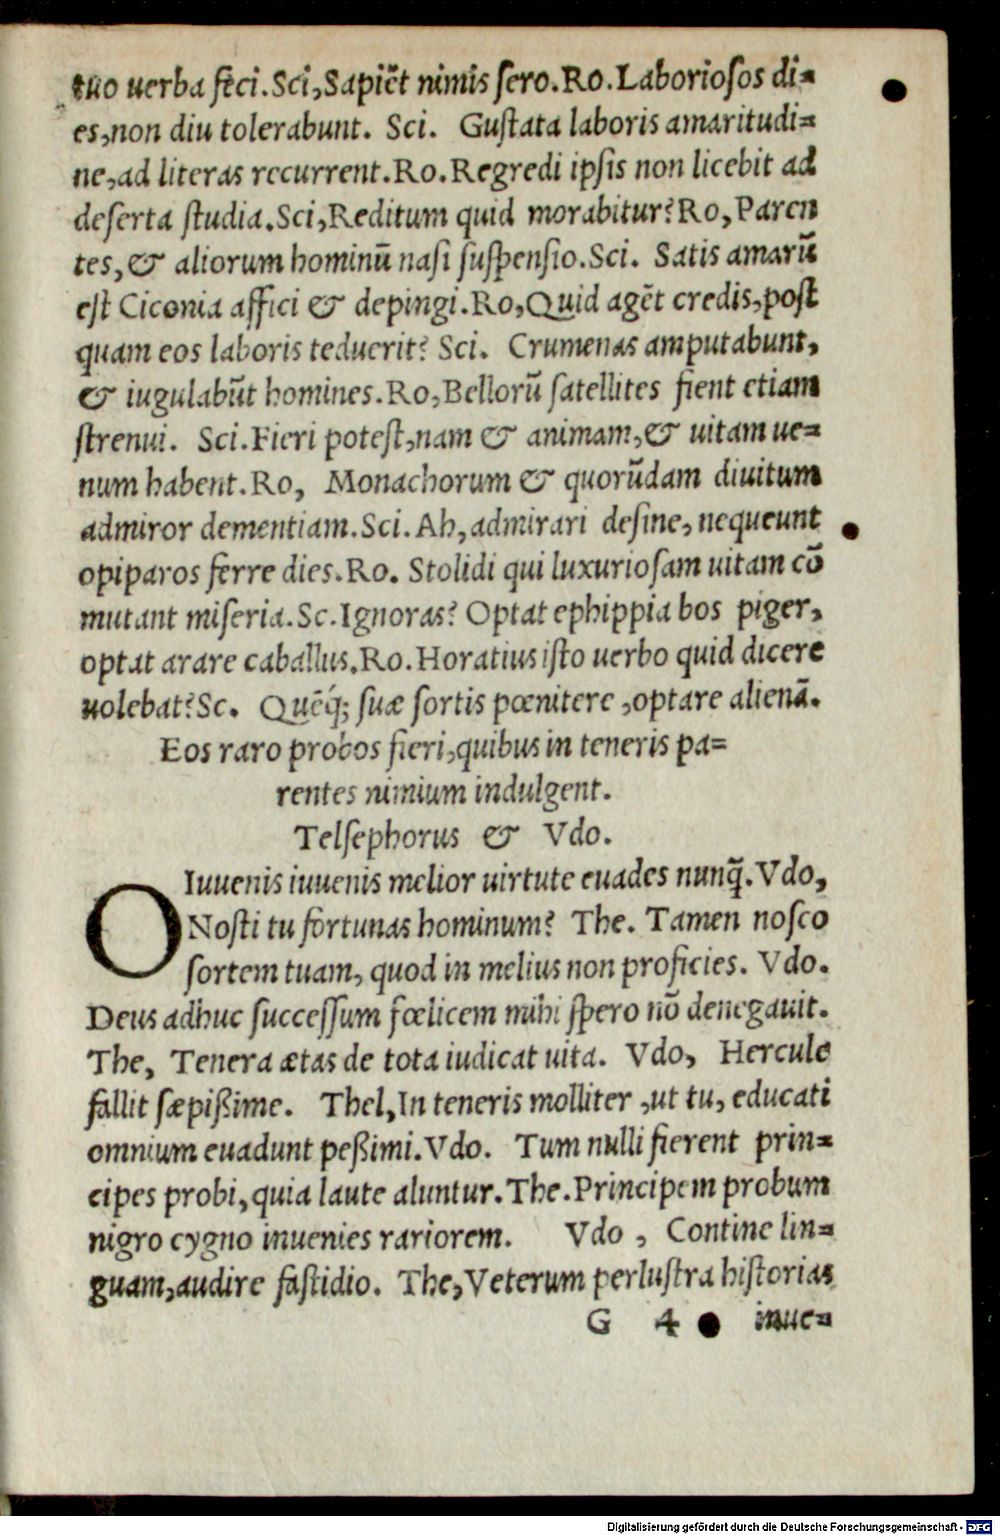 tuo uerba feci.Sci,Sapiēt nimis ſero.Ro.Laborioſos di=
es,non diu tolerabunt. Sci. Guſtata laboris amaritudi=
ne,ad literas recurrent.Ro.Regredi ipſis non licebit ad
deſerta ſtudia.Sci,Reditum quid morabitur?Ro,Paren
tes,& aliorum hominū naſi ſuſpenſio.Sci. Satis amarū
eſt Ciconia affici & depingi.Ro,Quid agēt credis,poſt
quam eos laboris teduerit? Sci. Crumenas amputabunt,
& iugulabūt homines.Ro,Bellorū ſatellites fient etiam
ſtrenui. Sci.Fieri poteſt,nam & animam,& uitam ue=
num habent.Ro, Monachorum & quorūdam diuitum
admiror dementiam.Sci. Ah,admirari deſine,nequeunt
opiparos ferre dies.Ro. Stolidi qui luxurioſam uitam cō
mutant miſeria.Sc.Ignoras? Optat ephippia bos piger,
optat arare caballus.Ro.Horatius iſto uerbo quid dicere
uolebat?Sc. Quēq́; ſuæ ſortis pœnitere ,optare alienā.
Eos raro probos fieri,quibus in teneris pa=
rentes nimium indulgent.
Telſephorus & Vdo.
O Iuuenis iuuenis melior uirtute euades nunq̄.Vdo,
Noſti tu fortunas hominum? The. Tamen noſco
ſortem tuam, quod in melius non proficies. Vdo.
Deus adhuc ſucceſſum fœlicem mihi ſpero nō denegauit.
The, Tenera ætas de tota iudicat uita. Vdo, Hercule
fallit ſæpißime. Thel,In teneris molliter ,ut tu, educati
omnium euadunt peßimi.Vdo. Tum nulli fierent prin=
cipes probi,quia laute aluntur.The.Principem probum
nigro cygno inuenies rariorem. Vdo , Contine lin=
guam,audire faſtidio. The,Veterum perluſtra hiſtorias
G 4 inue=
Digitalisierung gefördert durch die Deutsche Forschungsgemeinschaft - DFG